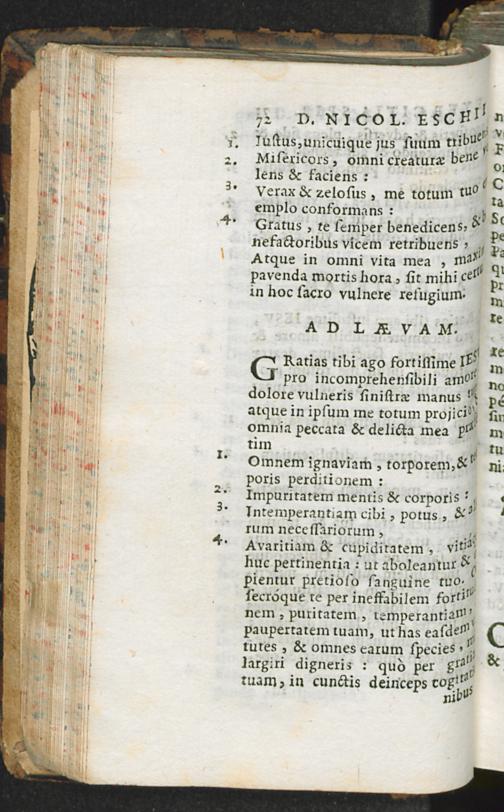 72 D. NICOL. ESCHII
1. Iustus, unicuique jus suum tribuen
2. Misericors, omni creaturæ bene v
lens & faciens :
3. Verax & zelosus, me totum tuo e
emplo conformans :
4. Gratus, te semper benedicens, & b
nefactoribus vicem retribuens,
Atque in omni vita mea, maxim
pavenda mortis hora, sit mihi certu
in hoc sacro vulnere refugium.
AD LÆVAM.
GRatias tibi ago fortissime IES
pro incomprehensibili amore
dolore vulneris sinistræ manus
atque in ipsum me totum projicio
omnia peccata & delicta mea
tim
1. Omnem ignaviam, torporem, & te
poris perditionem :
2. Impuritatem mentis & corporis :
3. Intemperantiam cibi, potus, & al
rum necessariorum,
4. Avaritiam & cupiditatem, vitiá
huc pertinentia : ut aboleantur &
pientur pretioso sanguine tuo. O
secróque te per ineffabilem fortitu
nem, puritatem, temperantiam,
paupertatem tuam, ut has easdem v
tutes, & omnes earum species, m
largiri digneris : quò per grati
tuam, in cunctis deinceps cogitati
nibus